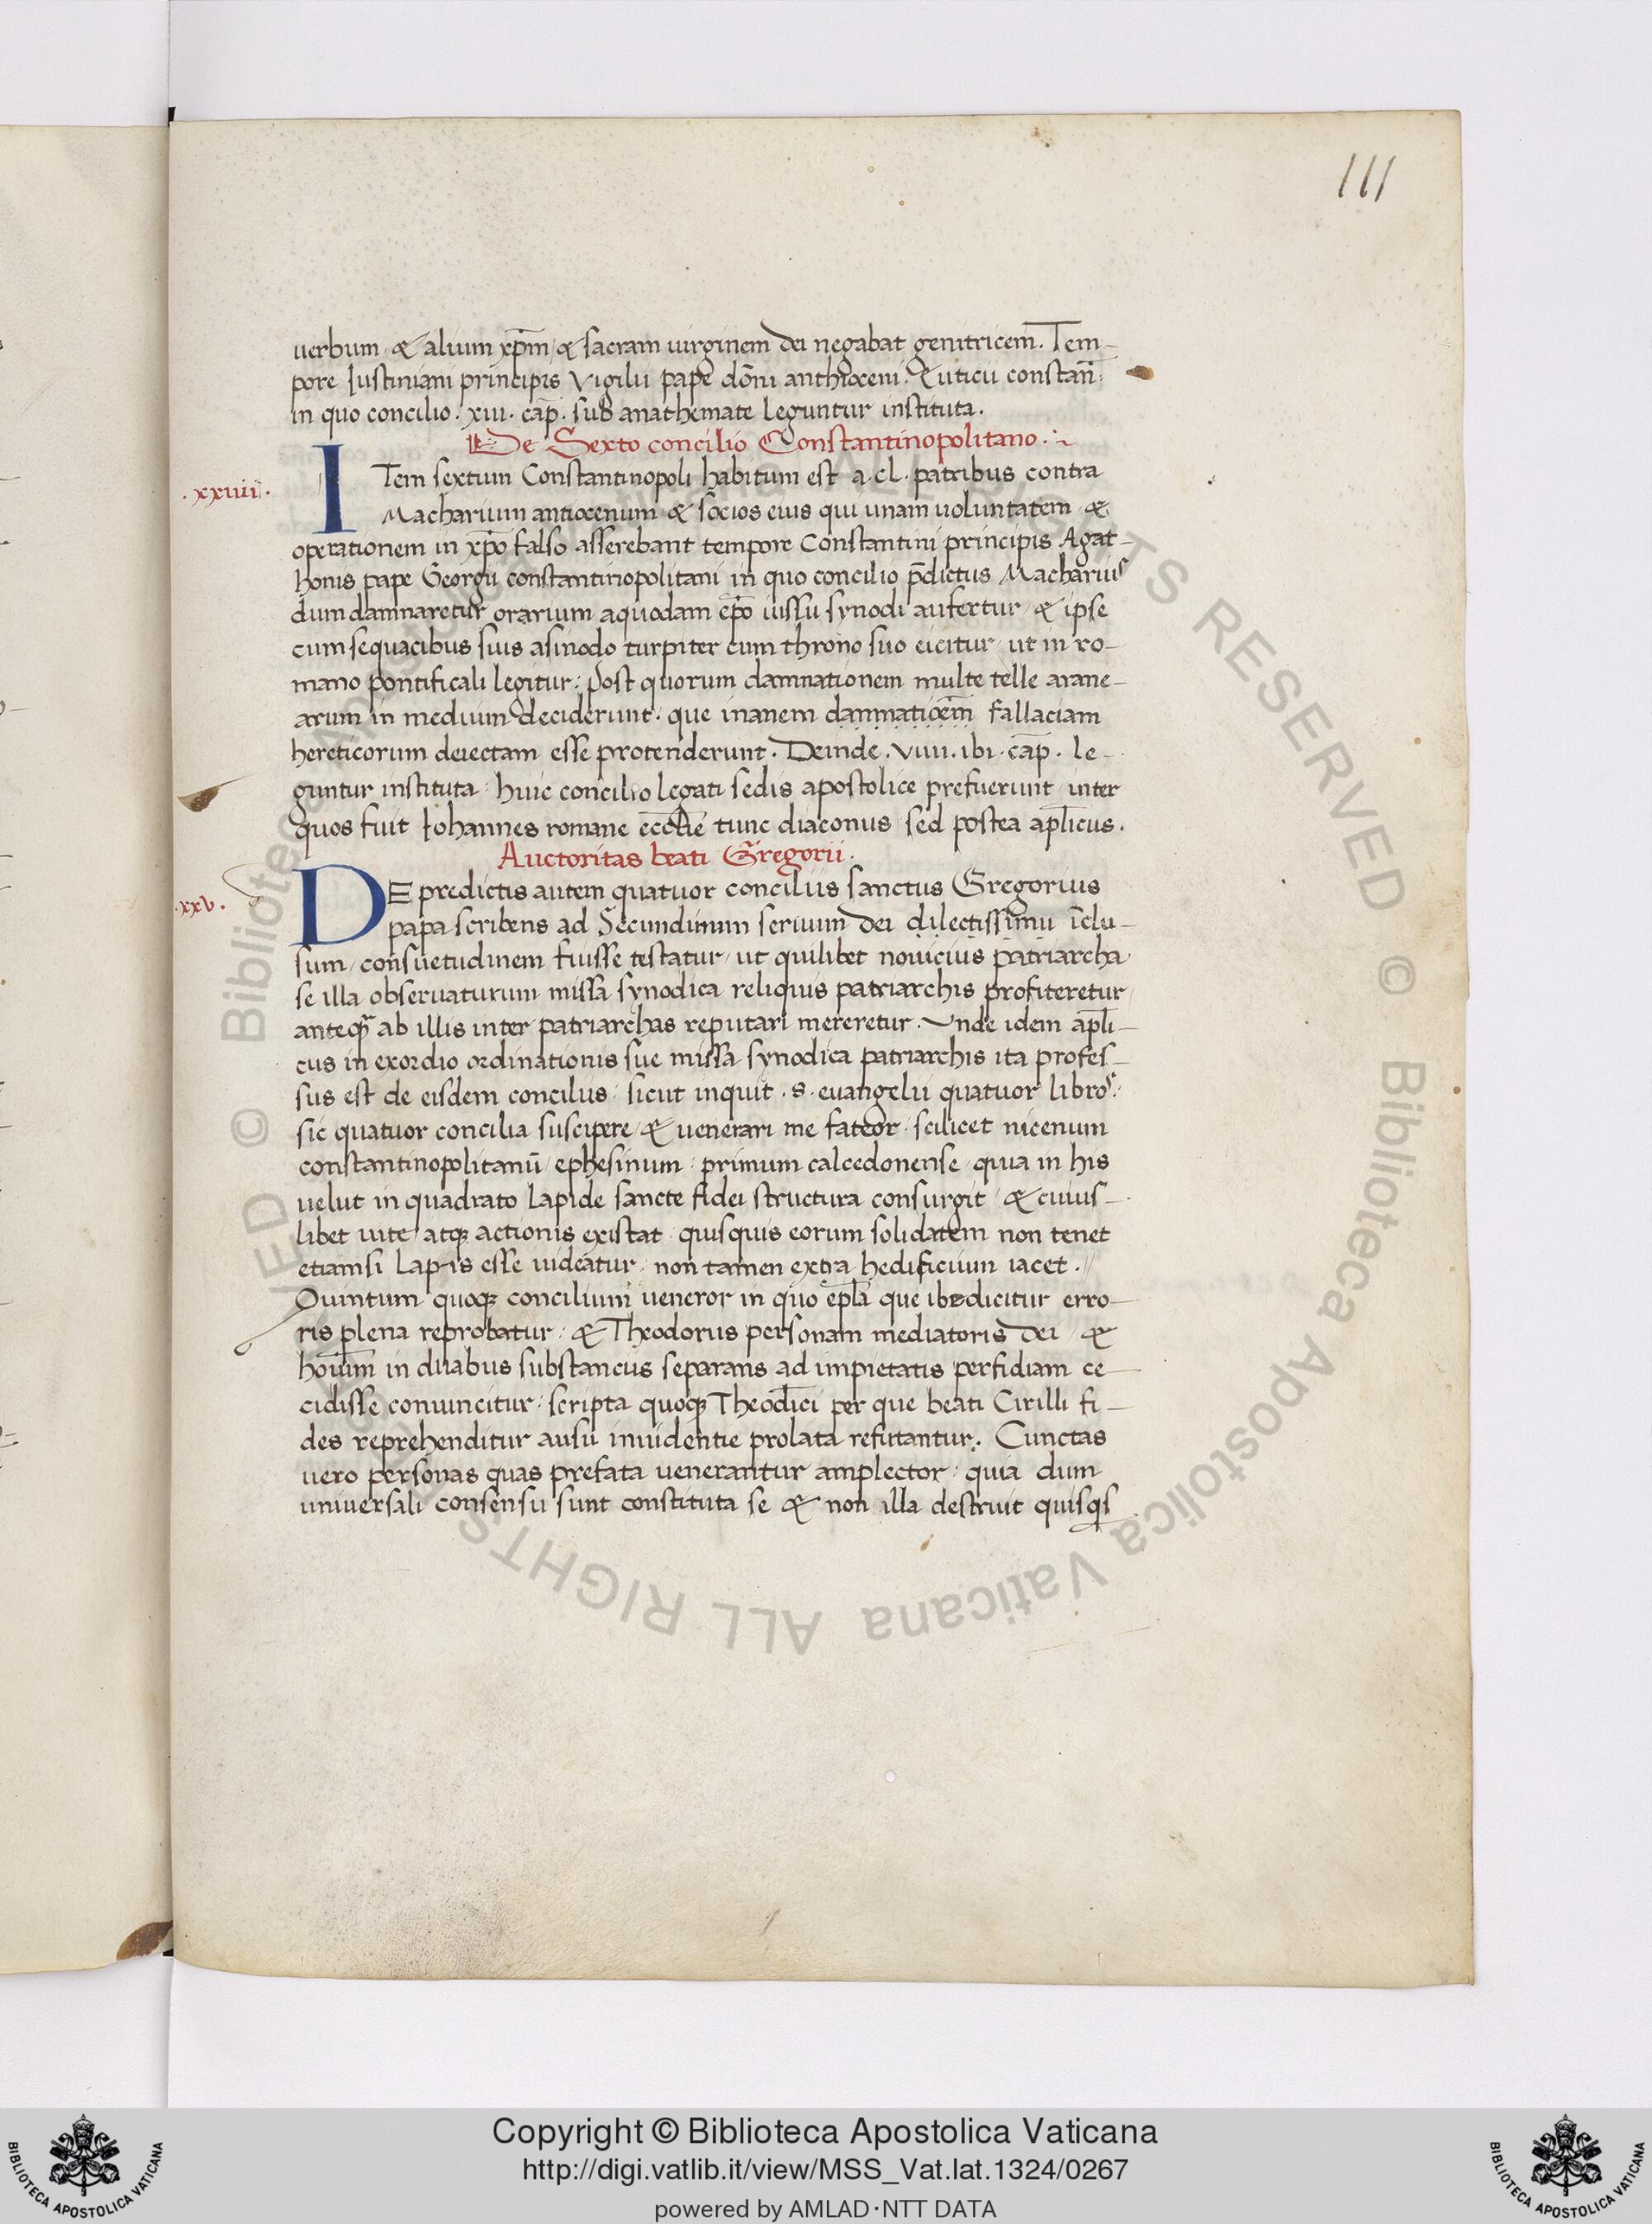 111
uerbum & alium xp̄m & sacram uirginem dei negabat genitricem. Tem-
pore Iustiniani principis Vigilii pape dōni anthioceni. Euticii constan̄.
in quo concilio. xiii. cap̄. sub anathemate leguntur instituta.
De Sexto concilio Constantinopolitano.
.xxiiii.
ITem sextum Constantinopoli habitum est a. cl. patribus contra
Macharium antiocenum & socios eius qui unam uoluntatem &
operationem in xp̄o falso asserebant tempore Constantini principis Agat-
honis pape Georgii constantinopolitani in quo concilio p̄dictus Macharius
dum damnaretur orarium aquodam ep̄o iussu synodi aufertur & ipse
cum sequacibus suis asinodo turpiter cum throno suo eicitur ut in ro-
mano pontificali legitur: post quorum damnationem multe telle arane-
arum in medium deciderunt. que inanem danmatioēm fallaciam
hereticorum deiectam esse protenderunt. Deinde. viiii. ibi. cap̄. le-
guntur instituta. huic concilio legati sedis apostolice prefuerunt inter
quos fuit Iohannes romane eccl̄ie tunc diaconus sed postea apl̄icus.
Auctoritas beati Gregorii.
.xxv.
DE predictis autem quatuor conciliis sanctus Gregorius
papa scribens ad Secundinum seruum dei dilectissimu īclu-
sum consuetudinem fuisse testatur ut quilibet nouicius patriarcha
se illa obseruaturum missa synodica reliquis patriarchis profiteretur
anteq̄ ab illis inter patriarchas reputari mereretur. Vnde idem apl̄i-
cus in exordio ordinationis sue missa synodica patriarchis ita profes-
sus est de eisdem conciliis sicut inquit. s. euangelii quatuor libros:
sic quatuor concilia suscipere & uenerari me fateor scilicet nicenum
constantinopolitanū ephesinum primum calcedonense quia in his
uelut in quadrato lapide sancte fidei structura consurgit & cuius-
libet uite atq; actionis existat quisquis eorum solidatem non tenet
etiamsi lapis esse uideatur non tamen extra hedificium iacet.
Quintum quoq; concilium ueneror in quo epl̄a que ibe dicitur erro-
ris plena reprobatur & Theodorus personam mediatoris dei &
hoium̄ in duabus substanciis separans ad impietatis perfidiam ce-
cidisse conuincitur scripta quoq; Theodl̄ici per que beati Cirilli fi-
des reprehenditur ausu inuidentie prolata refutantur. Cunctas
uero personas quas prefata uenerantur amplector quia dum
uniuersali consensu sunt constituta se & non illa destruit quisq̄s
Copyright © Biblioteca Apostolica Vaticana
http://digi.vatlib.it/view/MSS_Vat.lat.1324/0267
powered by AMLAD·NTT DATA
BIBLIOTECA APOSTOLICA VATICANA
BIBLIOTECA APOSTOLICA VATICANA
© Biblioteca Apostolica Vaticana ALL RIGHTS RESERVED © Biblioteca Apostolica Vaticana ALL RIGHTS RESERVED